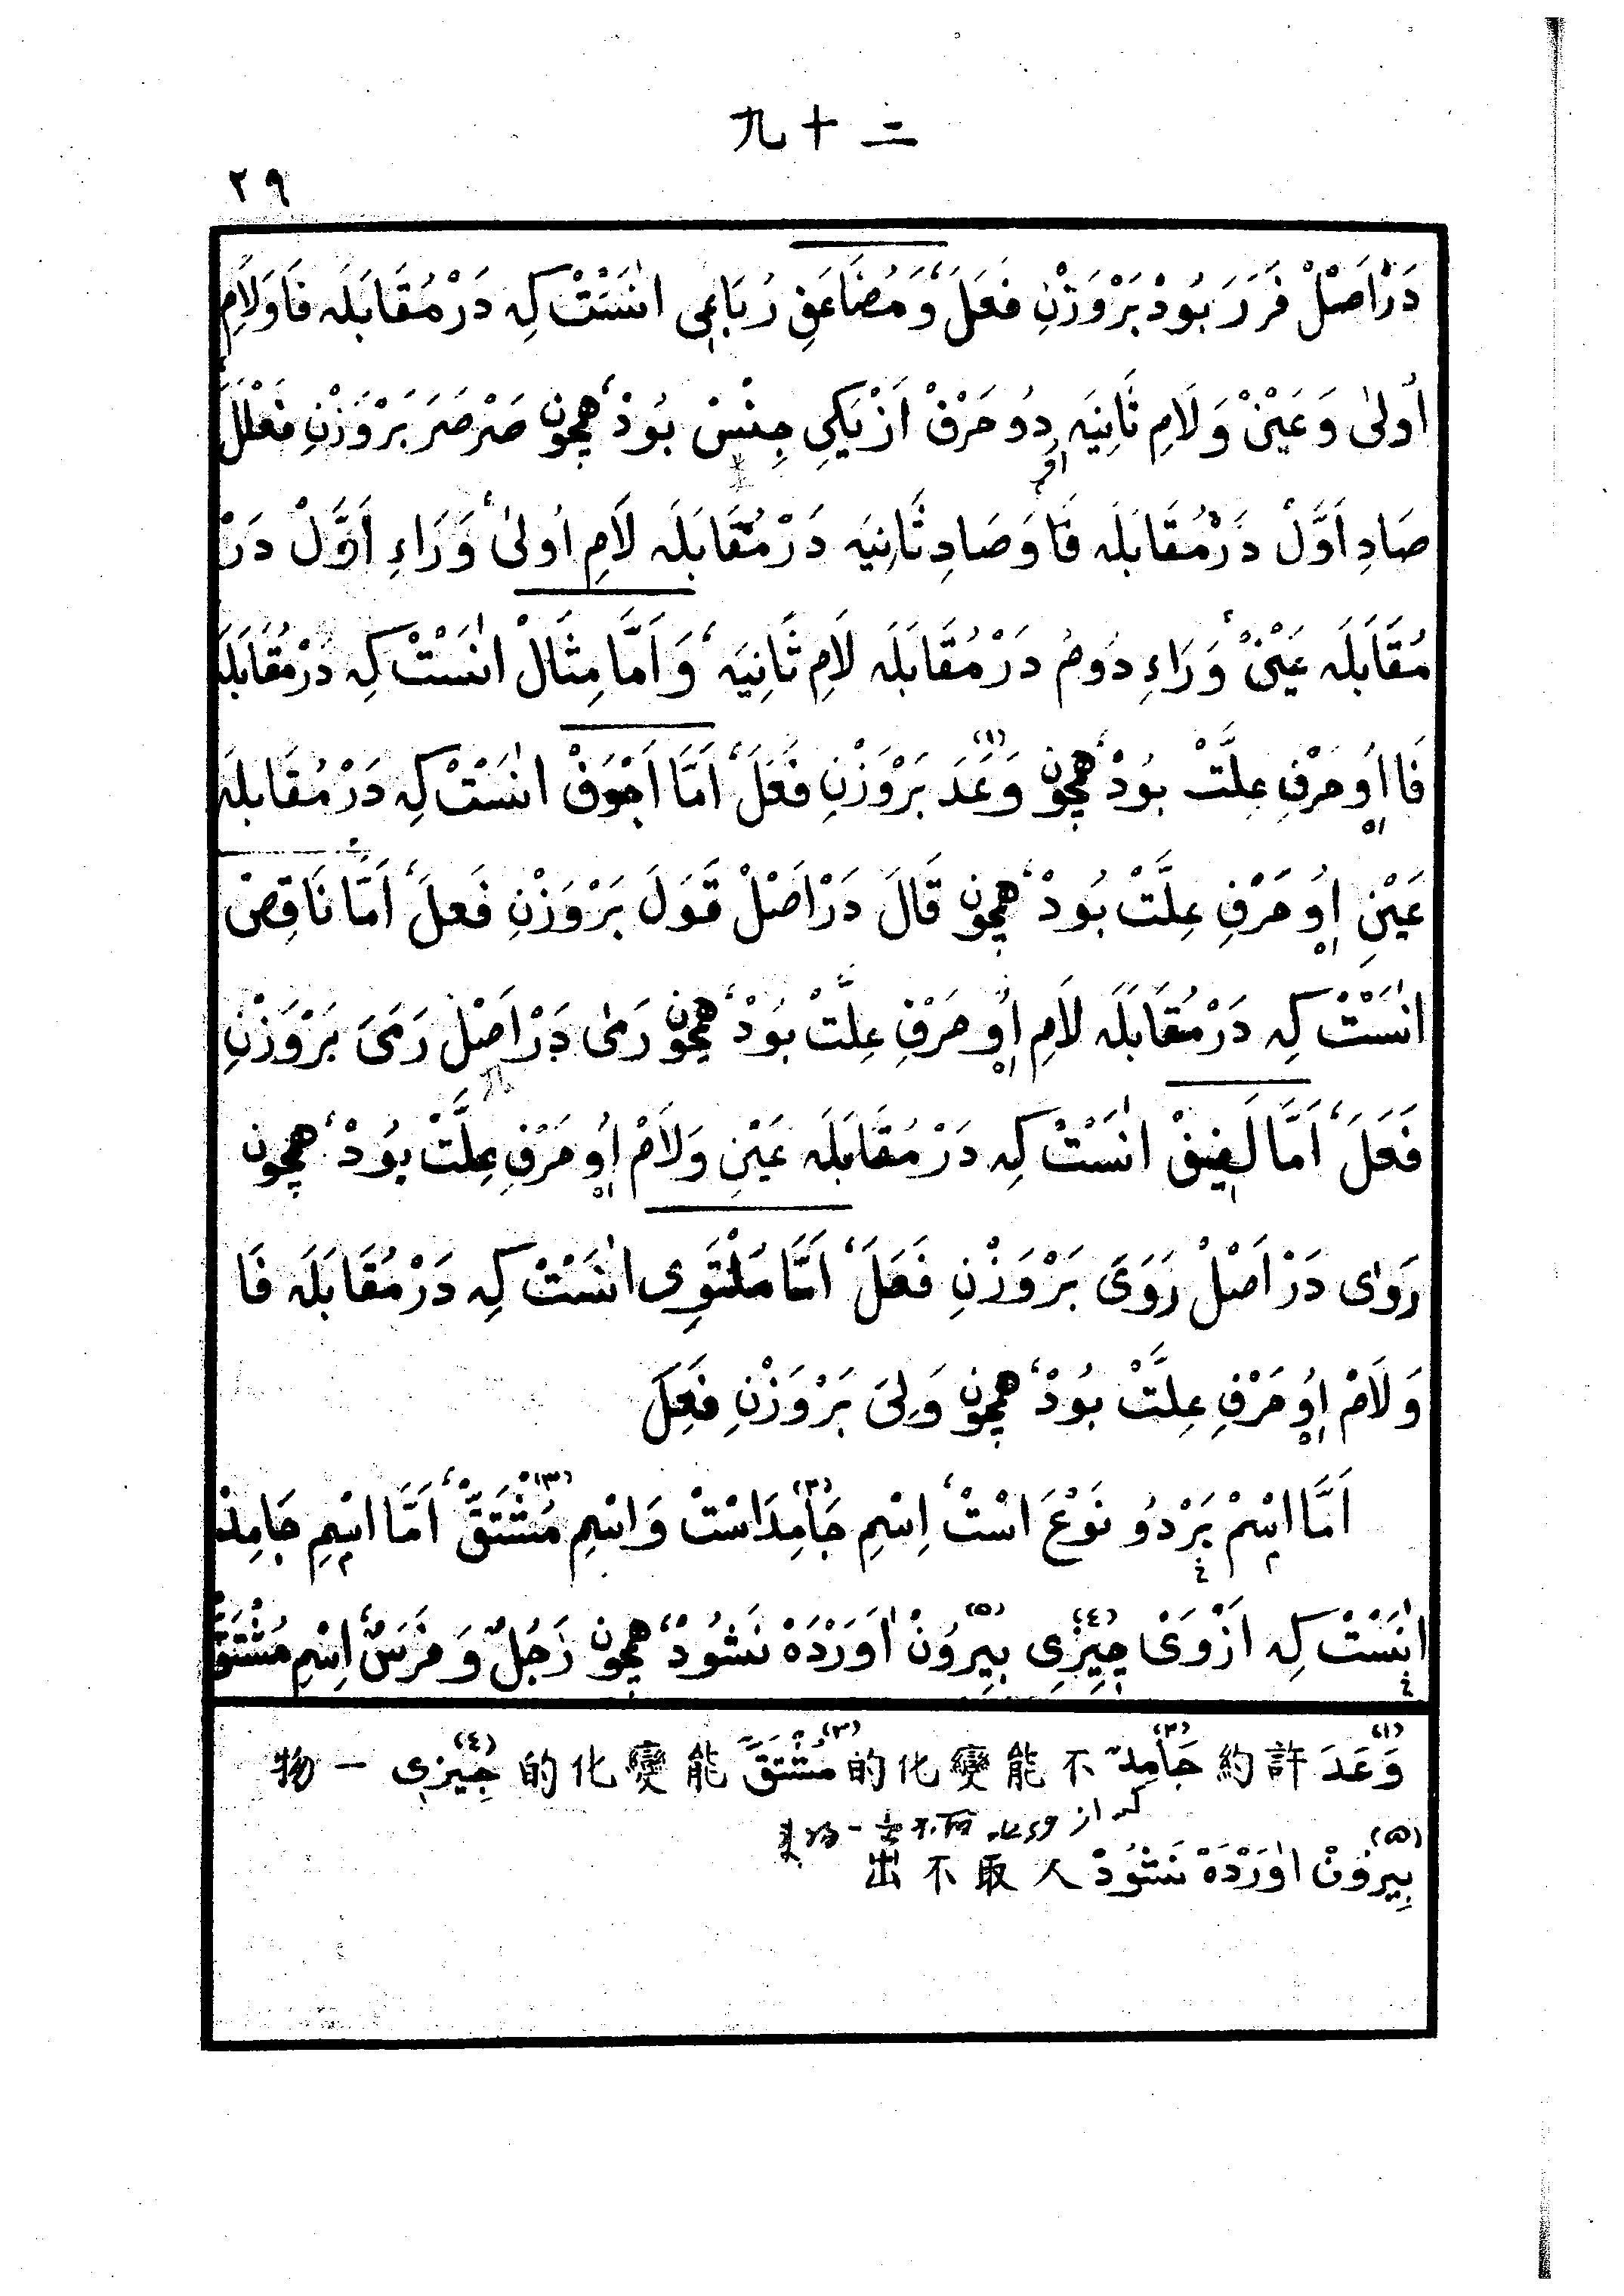 九十二
٢٩
دَرْاَصْلْ فَرَرَ بُودْ بَرْوَزْنِ فَعَلَ، وَمُضَاعَفِ رُبَاعِی انٰسَتْ کِہ دَرْمُقَابَلَہ فَاوَلَامِ
اُولیٰ وَعَیْنْ وَلَامِ ثَانِیَہ دُو حَرْفْ اَزْیَکِی جِنْسْ بُودْ، همچون صَرْصَرَ بَرْوَزْنِ فَعْلَلَ
صَادِ اَوَّلْ دَرْمُقَابَلَہ فَا وَصَادِ ثَانِیَہ دَرْمُقَابَلَہ لَامِ اُولیٰ، وَرَاءِ اَوَّلْ دَرْ
مُقَابَلَہ عَیْنْ، وَرَاءِ دُومْ دَرْمُقَابَلَہ لَامِ ثَانِیَہ، وَاَمَّا مِثَالْ انٰسَتْ کِہ دَرْمُقَابَلَہ
فَا اُو حَرْفِ عِلَّتْ بُودْ، همچون وَعَدَ (١) بَرْوَزْنِ فَعَلَ، اَمَّا اَجْوَفْ انٰسَتْ کِہ دَرْمُقَابَلَہ
عَیْنِ اُو حَرْفِ عِلَّتْ بُودْ، همچون قَالَ دَرْاَصْلْ قَوَلَ بَرْوَزْنِ فَعَلَ، اَمَّا نَاقِصْ
انٰسَتْ کِہ دَرْمُقَابَلَہ لَامِ اُو حَرْفِ عِلَّتْ بُودْ، همچون رَمیٰ دَرْاَصْلْ رَمَیَ بَرْوَزْنِ
فَعَلَ، اَمَّا لَفِیفْ انٰسَتْ کِہ دَرْمُقَابَلَہ عَیْنِ وَلَامْ اُو حَرْفِ عِلَّتْ بُودْ، همچون
رَوٰی دَرْاَصْلْ رَوَیَ بَرْوَزْنِ فَعَلَ، اَمَّا مُلْتَوِی انٰسَتْ کِہ دَرْمُقَابَلَہ فَا
وَلَامْ اُو حَرْفِ عِلَّتْ بُودْ، همچون وَلِیَ بَرْوَزْنِ فَعِلَ
اَمَّا اسْمْ بَرْدُو نَوْعَ اسْتْ، اِسْمِ جَامِدَ (٢) اسْتْ وَاسْمِ مُشْتَقّْ (٣)، اَمَّا اسْمِ جَامِدْ
انٰسَتْ کِہ اَزْوَیْ چِیزِی (٤) بِیرُونْ (٥) اٰوَرْدَہْ نَشُودْ، همچون رَجُلٌ وَفَرَسٌ، اِسْمِ مُشْتَقّْ
(١) وَعَدَ 許約 (٢) جَامِدٌ 不能變化的 (٣) مُشْتَقّ 能變化的 (٤) چِیزِی 一物
کہ از
(٥) بِیرُونْ اٰوَرْدَہْ نَشُودْ 人取不出